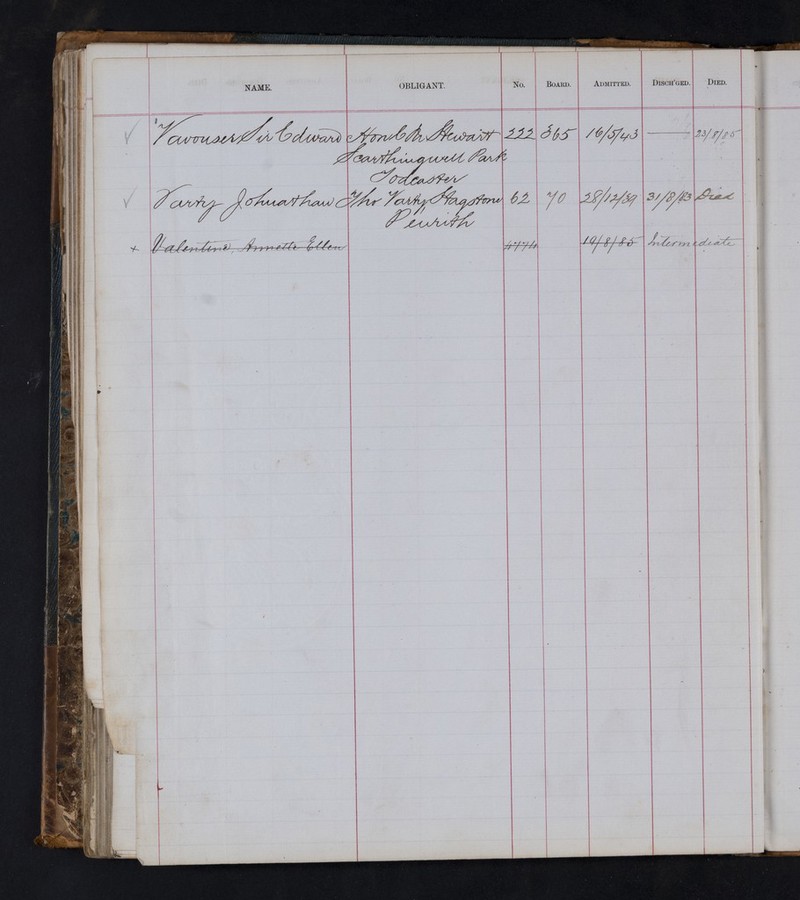 NAME. OBLIGANT. No. BOARD. ADMITTED. DISCH'GED. DIED.
Vavouser Sir Edward Honl Stewart 222 365 16/5/43 — 23/8/85
Scarthingwell Park
Todcaster
Varty Johnathan Thos Varty Stagstone 62 70 28/12/39 31/8/83 Died
Penrith
Valentine, Annette Ellen 19/8/85 Intermediate